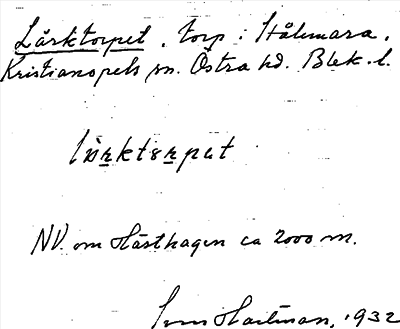 Lärktorpet, torp i Stålemara,
Kristianopels sn. Östra hd. Blek. l.
NV. om Hästhagen ca 2000 m.
Hartman, 1932